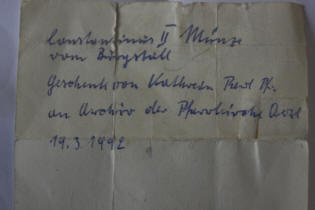 Constantinus II Münze
vom Burgstall
Geschenk von Kathrein Paul Pf.
an Archiv der Pfarrkirche Arzl
19.3.1992